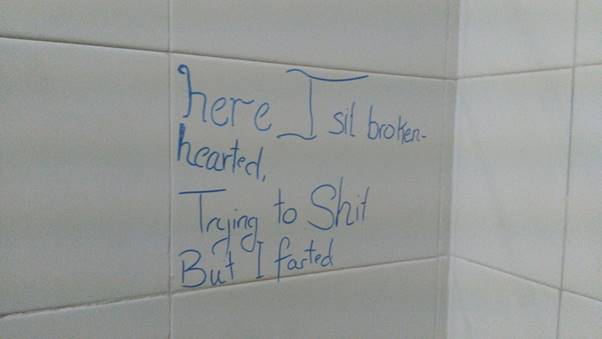 here I sit broken-
hearted,
Trying to Shit
But I farted